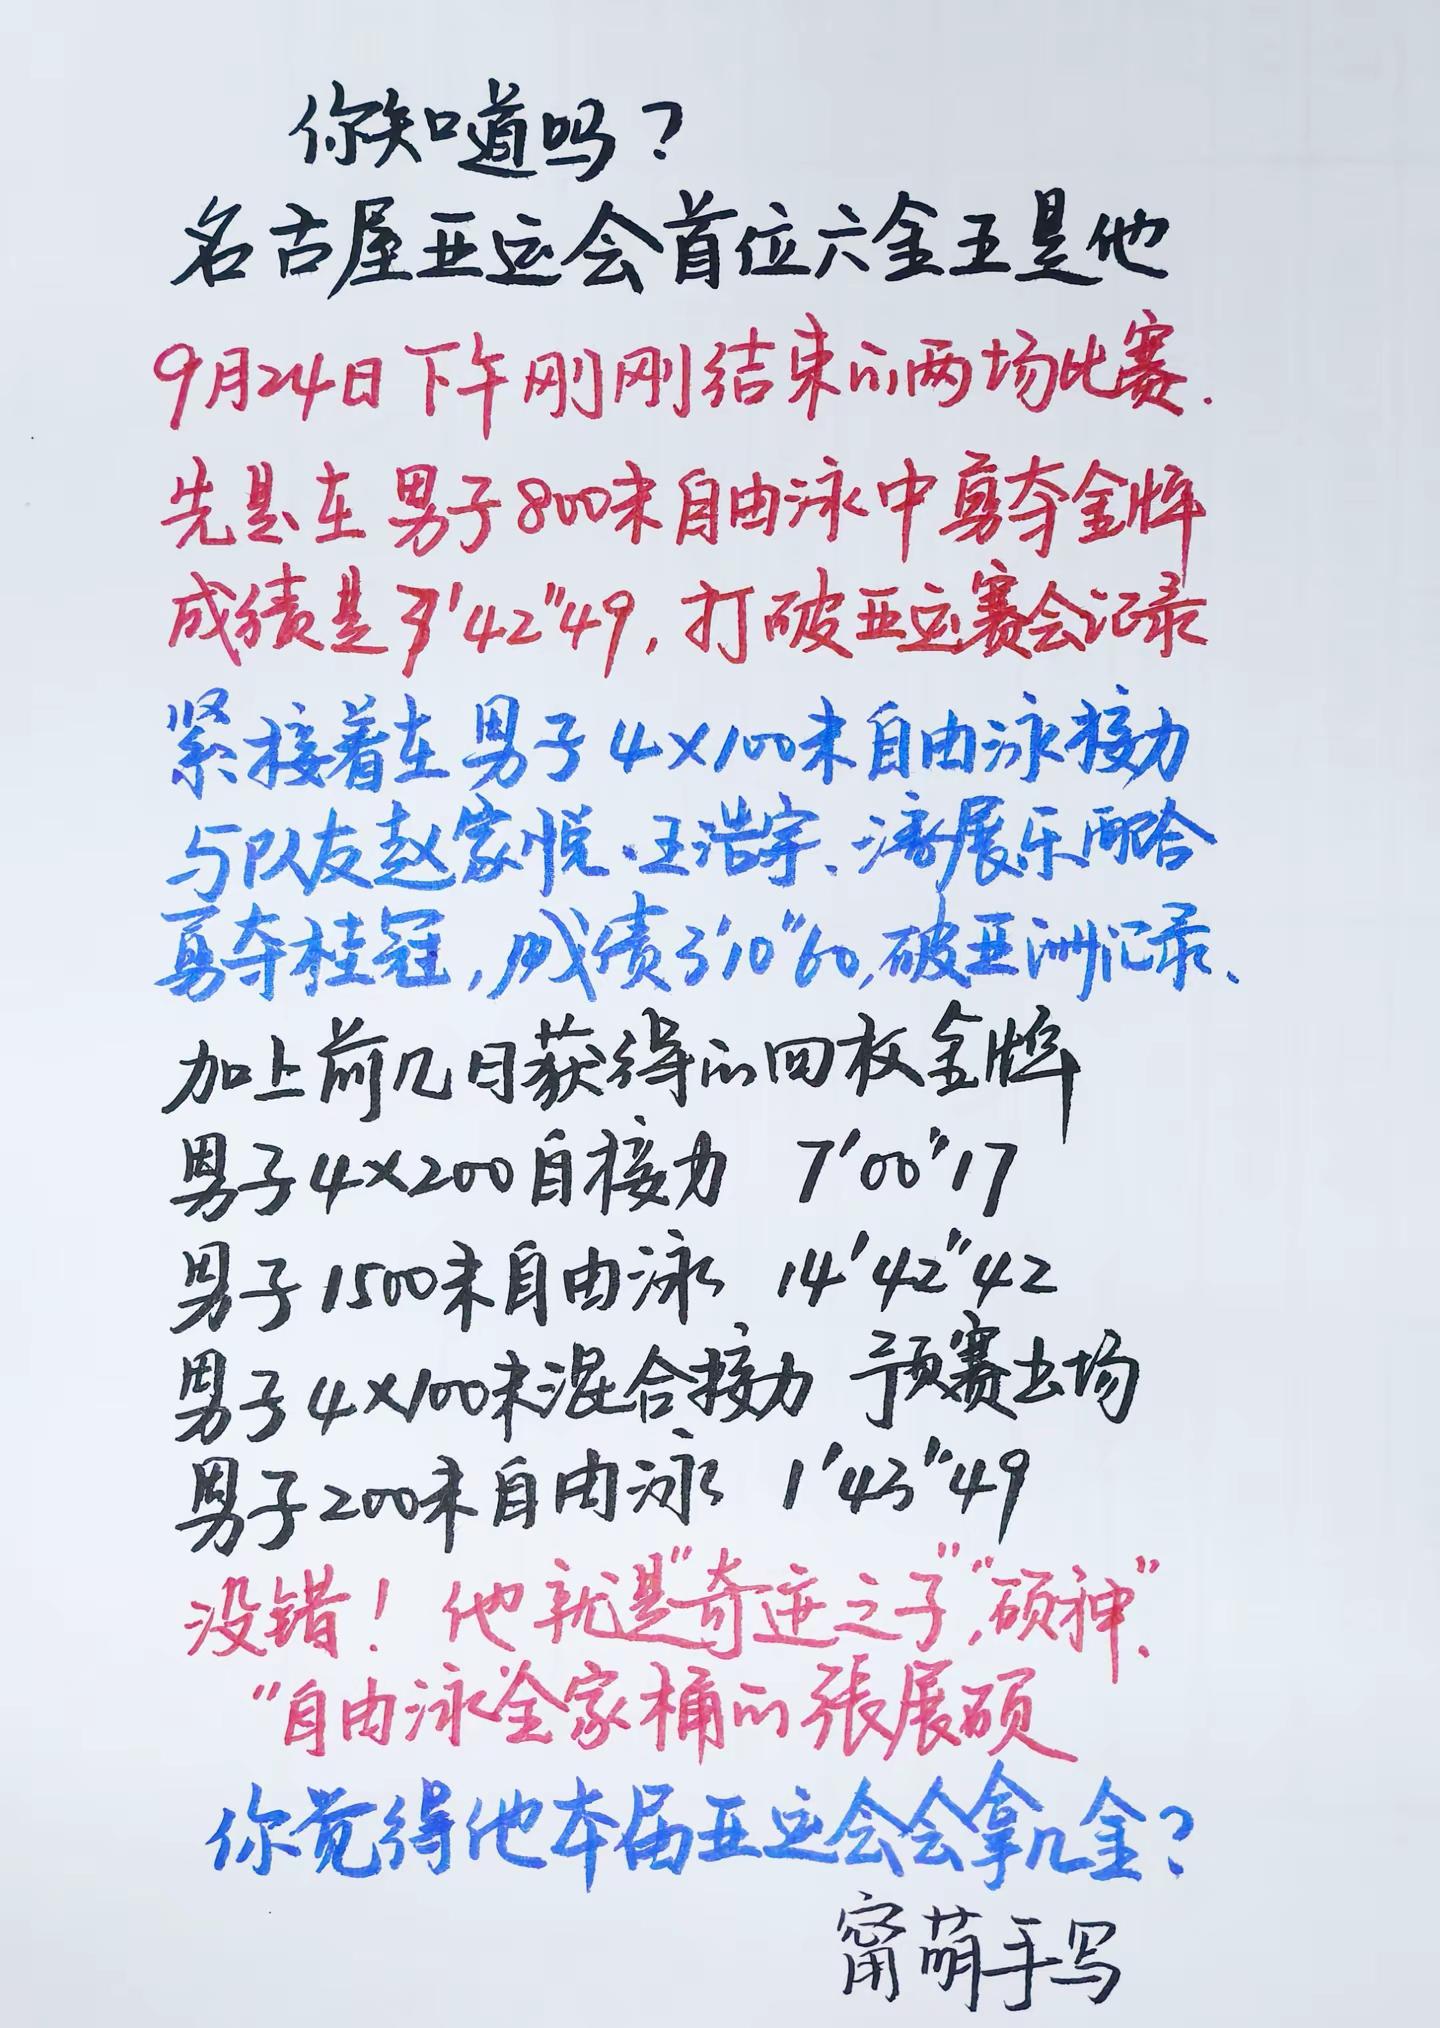 你知道吗？
名古屋亚运会首位六金王是他
9月24日下午刚刚结束的两场比赛.
先是在男子800米自由泳中勇夺金牌
成绩是7'42"49,打破亚运赛会记录
紧接着在男子4×100米自由泳接力
与队友赵家悦、王浩宇、潘展乐配合
勇夺桂冠,成绩3'10"60,破亚洲记录、
加上前几日获得的四枚金牌
男子4×200自接力 7'00"17
男子1500米自由泳 14'42"42
男子4×100米混合接力 预赛出场
男子200米自由泳 1'43"49
没错！他就是"奇迹之子","硕神"、
"自由泳全家桶的張展硕
你觉得他本届亚运会会拿几金？
甯萌手写